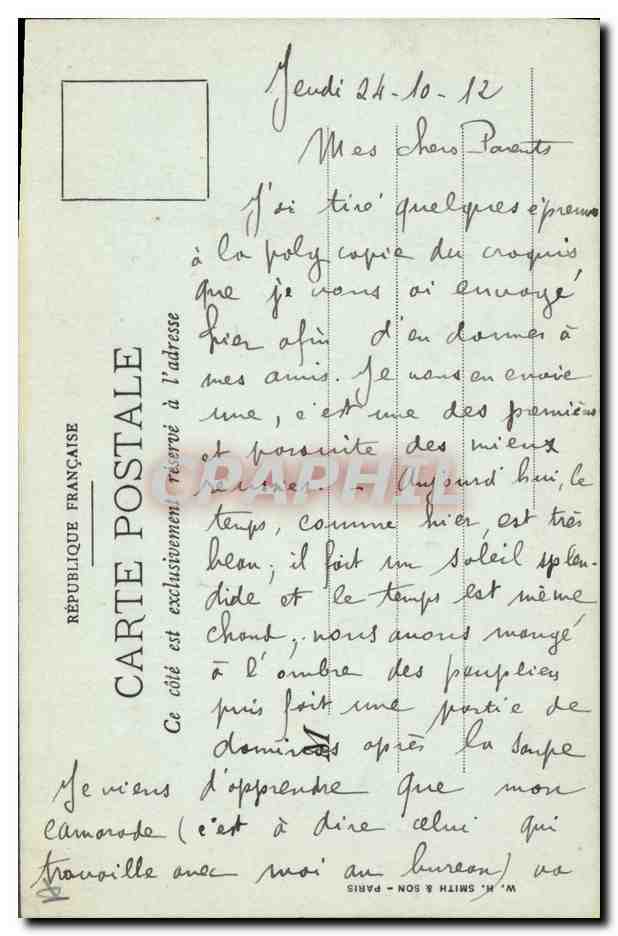 Jeudi 24-10-12
Mes chers Parents
J'ai tiré quelques épreuves
à la polycopie du croquis,
que je vous ai envoyé
hier afin d'en donner à
mes amis. Je vous en envoie
une, c'est une des premières
et par suite des mieux
réussies. - Aujourd'hui, le
temps, comme hier, est très
beau; il fait un soleil splen-
dide et le temps est même
chaud; nous avons mangé
à l'ombre des peupliers
puis fait une partie de
dominos après la soupe
Je viens d'apprendre que mon
camarade (c'est à dire celui qui
travaille avec moi au bureau) va
RÉPUBLIQUE FRANÇAISE
CARTE POSTALE
Ce côté est exclusivement réservé à l'adresse
M
W. H. SMITH & SON - PARIS
CPAPHIL